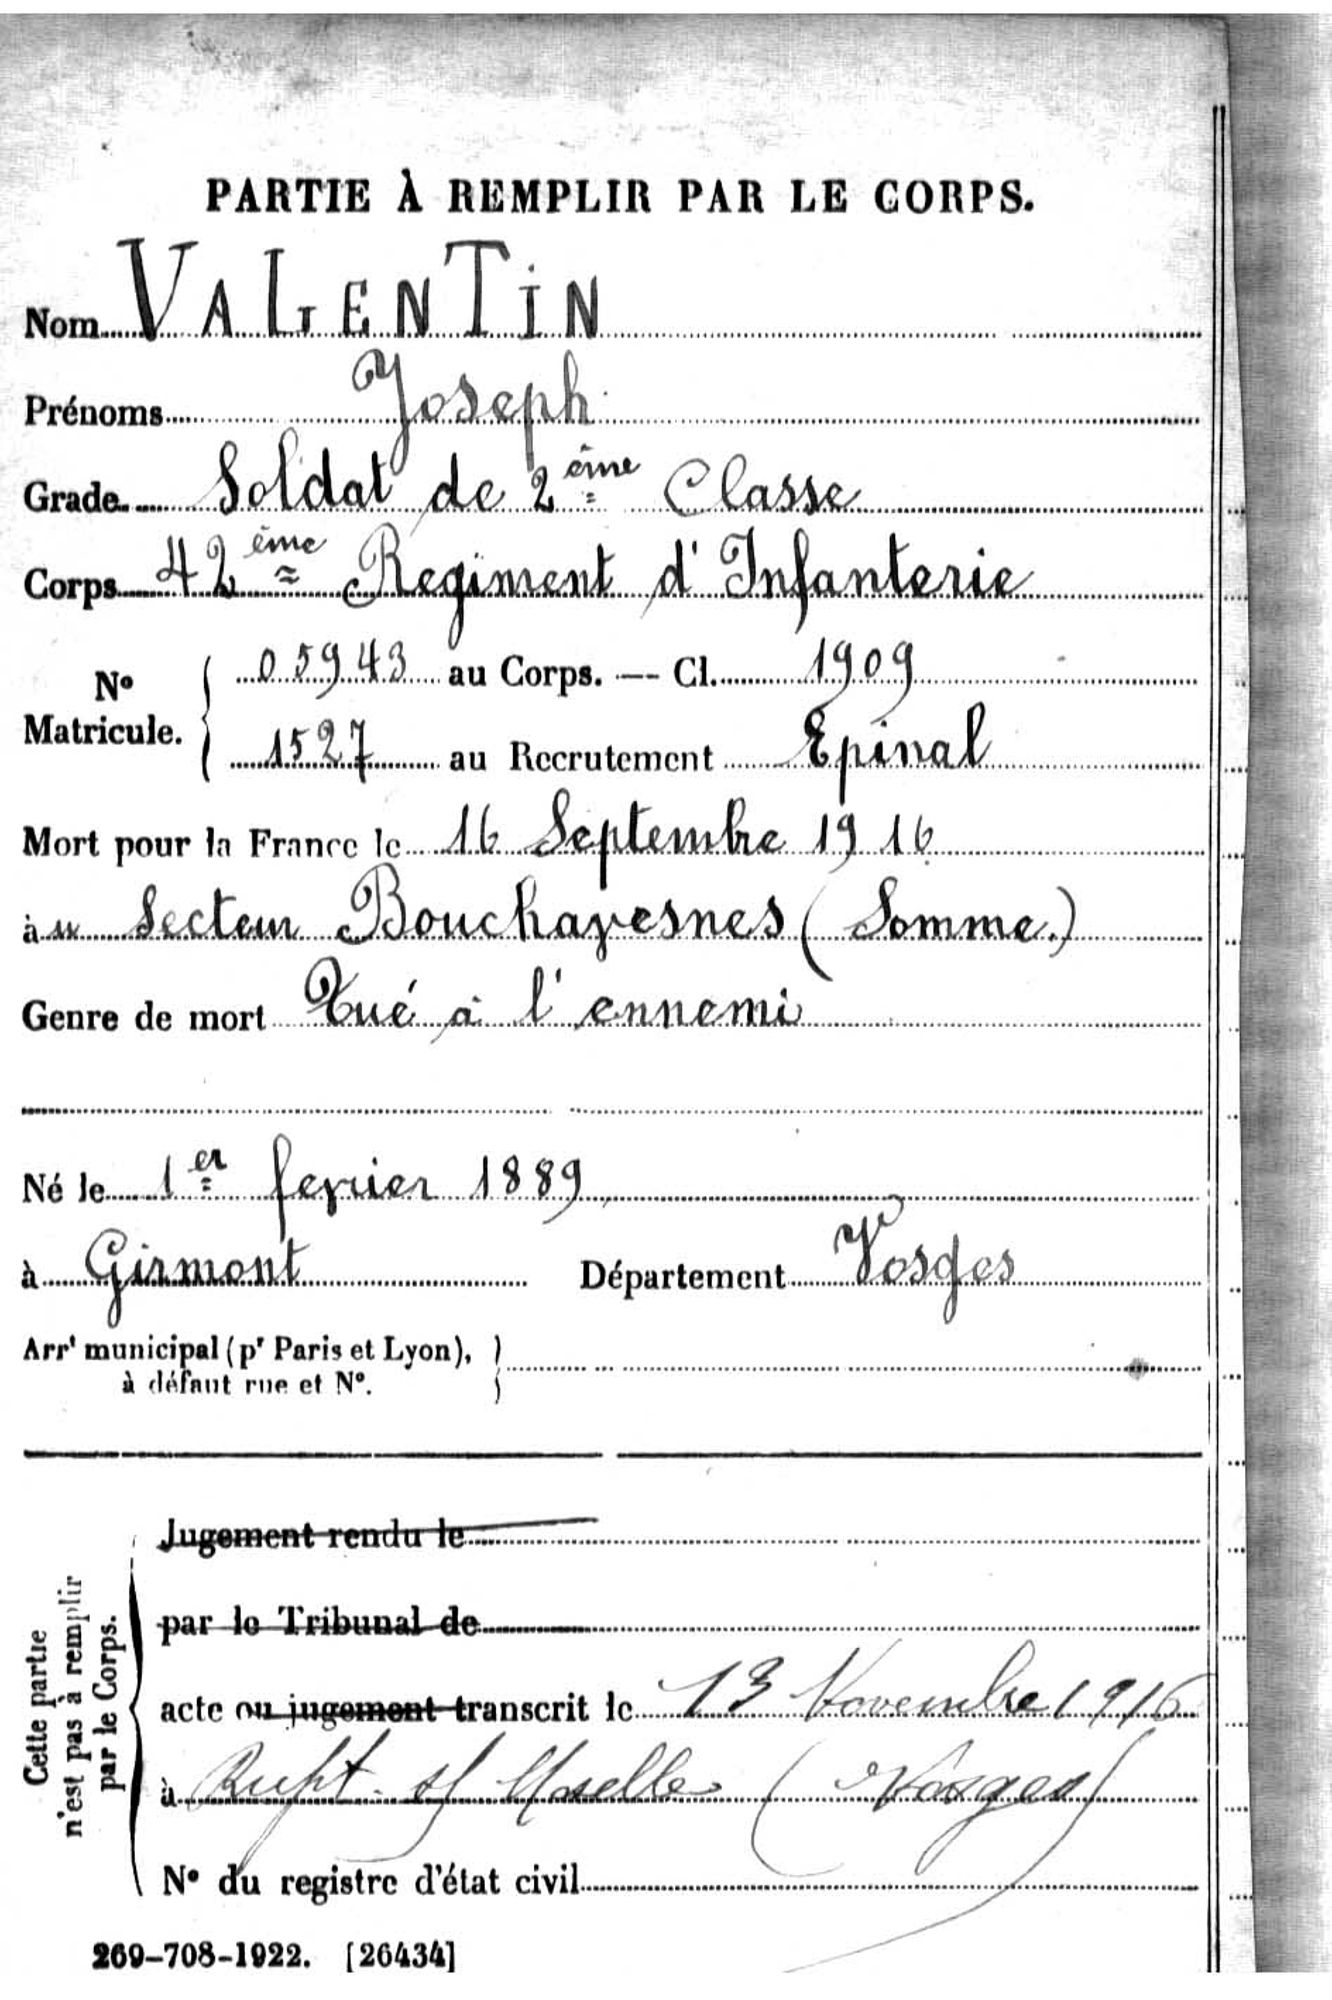 PARTIE À REMPLIR PAR LE CORPS.
Nom VALENTIN
Prénoms Joseph
Grade Soldat de 2ème Classe
Corps 42ème Regiment d'Infanterie
N° Matricule. 05943 au Corps. — Cl. 1909
1527 au Recrutement Epinal
Mort pour la France le 16 Septembre 1916
à u Secteur Bouchavesnes (Somme.)
Genre de mort Tué à l'ennemi
Né le 1er fevrier 1889
à Girmont Département Vosges
Arrt municipal (pr Paris et Lyon),
à défaut rue et N°.
Cette partie
n'est pas à remplir
par le Corps.
Jugement rendu le
par le Tribunal de
acte ou jugement transcrit le 13 Novembre 1916
à Rupt s/ Moselle (Vosges)
N° du registre d'état civil
269-708-1922. [26434]